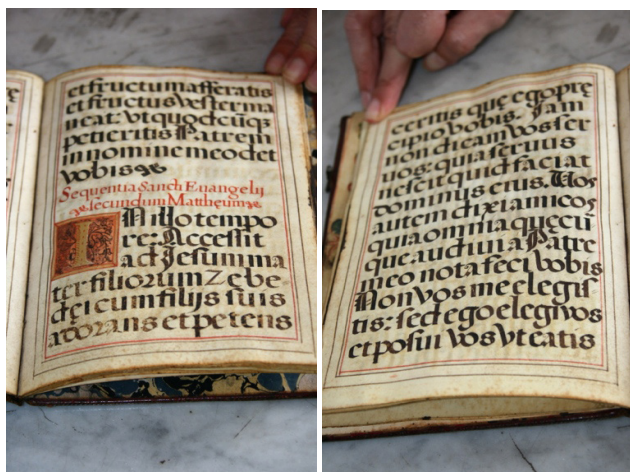 et fructum afferatis
et fructus vester ma
neat: Vt quodcũqʒ
petieritis Patrem
in nomine meo det
vobis
Sequentia Sancti Euangelij
secundum Mattheum
IN illo tempo
re: Accessit
ad Jesum ma
ter filiorum Zebe
dei cum filijs suis
adorans et petens
ceritis quę ego prę
cipio vobis. Jam
non dicam vos ser
uos: quia seruus
nescit quid faciat
dominus eius. Vos
autem dixi amicos
quia omnia quęcũ
que audiui a Patre
meo nota feci vobis
Non vos me elegis
tis: sed ego elegi vos
et posui vos vt eatis